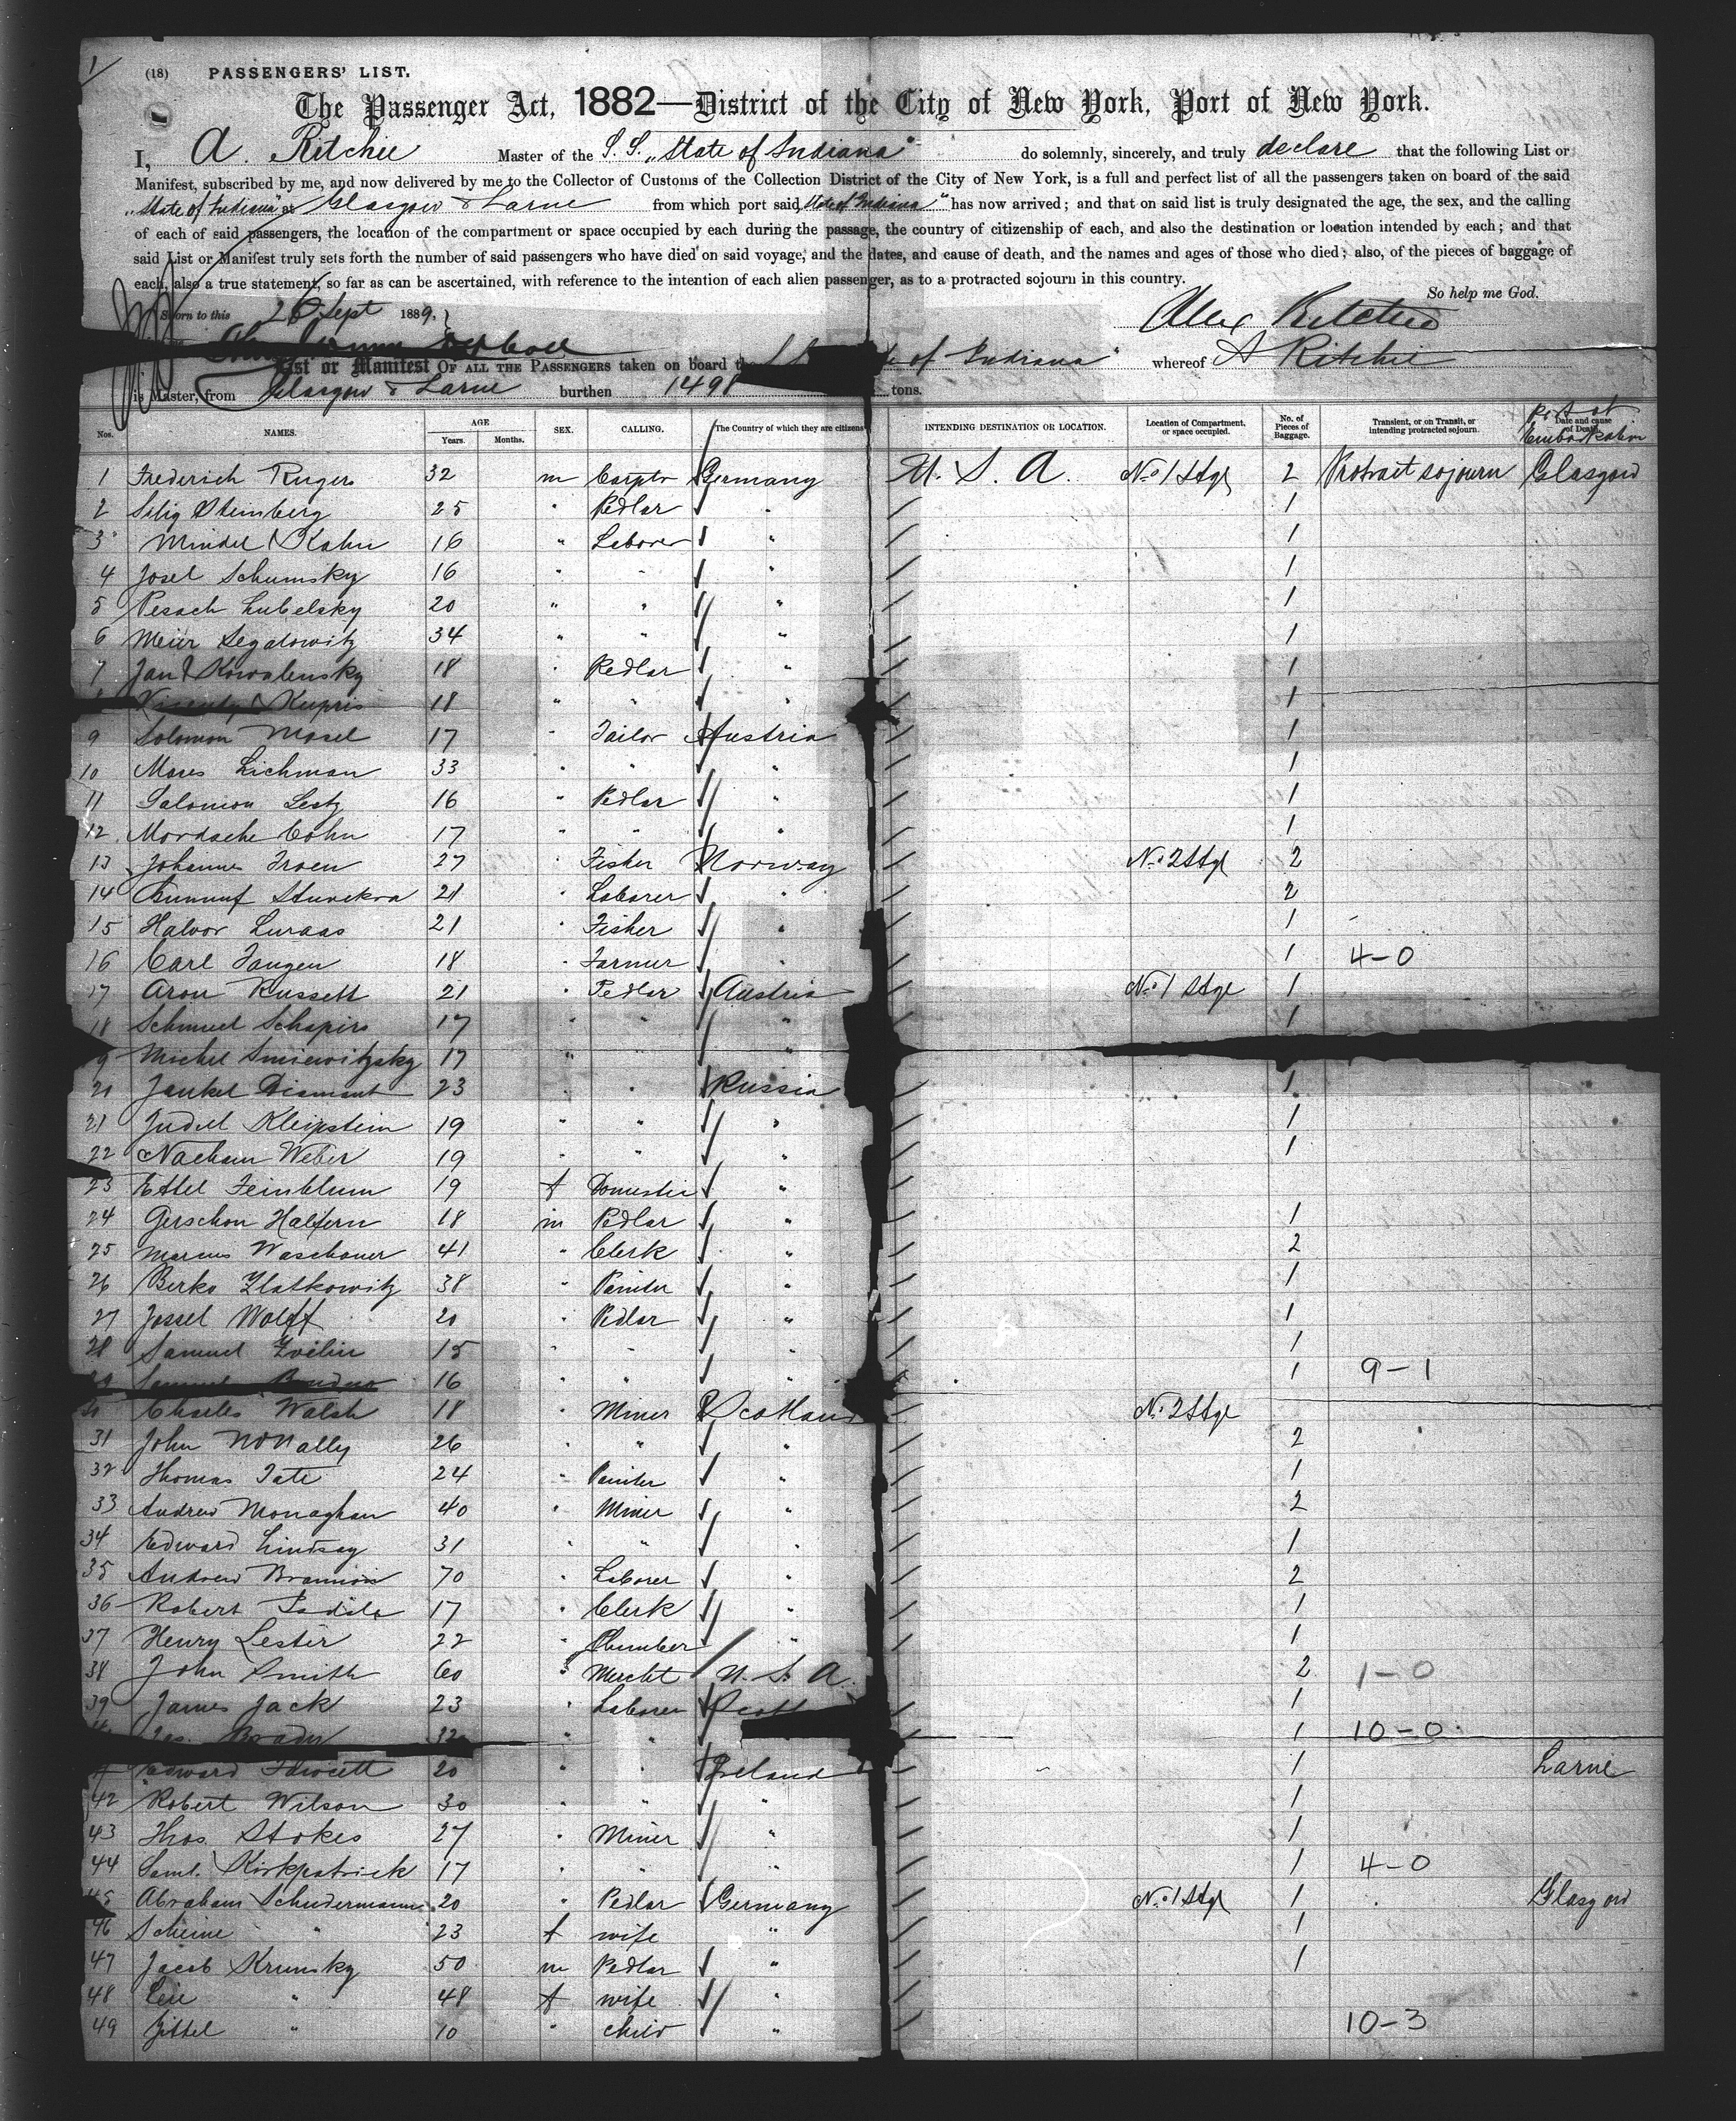 1
(18) PASSENGERS' LIST.
The Passenger Act, 1882—District of the City of New York, Port of New York.
I, A. Ritchie Master of the S.S. "State of Indiana" do solemnly, sincerely, and truly declare that the following List or
Manifest, subscribed by me, and now delivered by me to the Collector of Customs of the Collection District of the City of New York, is a full and perfect list of all the passengers taken on board of the said
"State of Indiana" at Glasgow & Larne from which port said "State of Indiana" has now arrived; and that on said list is truly designated the age, the sex, and the calling
of each of said passengers, the location of the compartment or space occupied by each during the passage, the country of citizenship of each, and also the destination or location intended by each; and that
said List or Manifest truly sets forth the number of said passengers who have died on said voyage, and the dates, and cause of death, and the names and ages of those who died; also, of the pieces of baggage of
each, also a true statement, so far as can be ascertained, with reference to the intention of each alien passenger, as to a protracted sojourn in this country.
So help me God.
Sworn to this 26 Sept 1889, Alex Ritchie
List or Manifest OF ALL THE PASSENGERS taken on board the of Indiana" whereof A Ritchie
is Master, from Glasgow & Larne burthen 1498 tons.
Nos. NAMES. AGE Years. Months. SEX. CALLING. The Country of which they are citizens INTENDING DESTINATION OR LOCATION. Location of Compartment, or space occupied. No. of Pieces of Baggage. Transient, or on Transit, or intending protracted sojourn. Date and cause of Death. Port of Embarkation
1 Frederich Rugers 32 m Carptr Germany U. S. A. No 1 Stge 2 Protrait sojourn Glasgow
2 Selig Steinberg 25 " Pedlar " 1
3 Mindel Kahn 16 " Laborer " 1
4 Josel Schumsky 16 " " " 1
5 Pesach Lubelsky 20 " " " 1
6 Meier Segalowitz 34 " " " 1
7 Jan Kowalensky 18 " Pedlar " 1
Kupris 18 " " " 1
9 Solomon Mosel 17 " Tailor Austria 1
10 Moses Lichman 33 " " " 1
11 Salomon Lestz 16 " Pedlar " 1
12 Mordsche Cohn 17 " " " 1
13 Johannes Troen 27 Fisher Norway No 2 Stge 2
14 21 " Laborer " 2
15 Halvor Luraas 21 " Fisher " 1
16 Carl Tangen 18 " Farmer " 1 4-0
17 Aron Russett 21 " Pedlar Austria No 1 Stge 1
18 Schmuel Schapiro 17 " " " 1
9 Michel 17 " "
20 Jankel Diamant 23 " " Russia 1
21 Judel Kleipstein 19 " " " 1
22 Nachum Weber 19 " " " 1
23 Ettel Feinblum 19 f Domestic "
24 Gerschon Halfern 18 m Pedlar " 1
25 Marcus Waschauer 41 " Clerk " 2
26 Berko Zlatkowitz 38 " Painter " 1
27 Jossel Wolff 20 " Pedlar " 1
28 Samuel 15 " " " 1
29 Samuel 16 " " " 1 9-1
30 Charles Walsh 18 " Miner Scotland No 2 Stge
31 John McNally 26 " " " 2
32 Thomas Tate 24 " Painter " 1
33 Andrew Monaghan 40 " Miner " 2
34 Edward Lindsay 31 " " " 1
35 Andrew Brannion 70 " Laborer " 2
36 Robert 17 " Clerk " 1
37 Henry Lester 22 " Plumber " 1
38 John Smith 60 " Mercht U. S. A. 2 1-0
39 James Jack 23 " Laborer Scot 1
Brady 32 " " 1 10-0
41 Edward Fawcett 20 " " Ireland 1 Larne
42 Robert Wilson 30 " " " 1
43 Thos. Stokes 27 " Miner " 1
44 Saml. Kirkpatrick 17 " " " 1 4-0
45 Abraham Schudermann 20 " Pedlar Germany No 1 Stge 1 Glasgow
46 Scheine " 23 f wife " 1
47 Jacob Krumsky 50 m Pedlar " 1
48 Leie " 48 f wife "
49 Zittel " 10 " child " 10-3